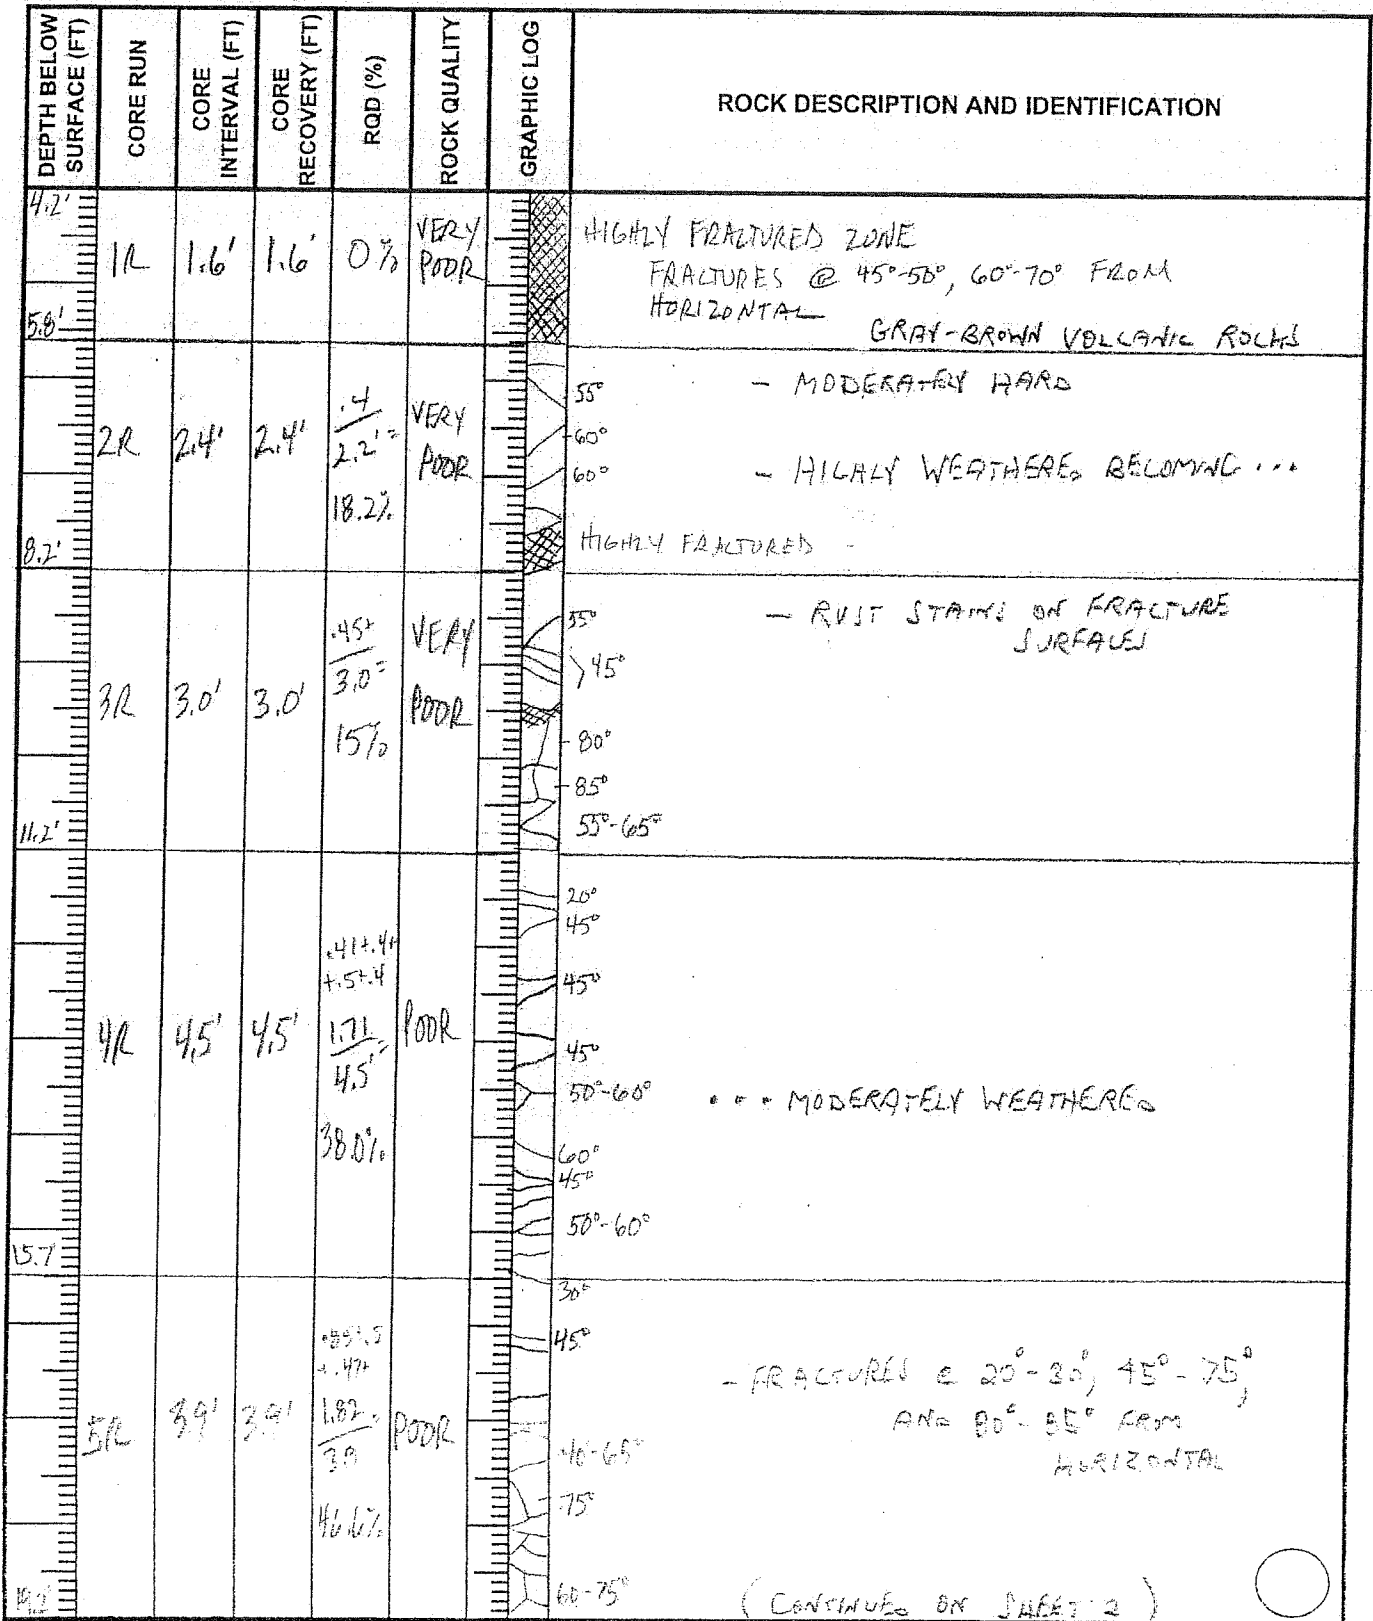 DEPTH BELOW
SURFACE (FT)
CORE RUN
CORE
INTERVAL (FT)
CORE
RECOVERY (FT)
RQD (%)
ROCK QUALITY
GRAPHIC LOG
ROCK DESCRIPTION AND IDENTIFICATION
4.2'
5.8'
1R
1.6'
1.6'
0%
VERY
POOR
HIGHLY FRACTURED ZONE
FRACTURES @ 45°-50°, 60°-70° FROM
HORIZONTAL
GRAY-BROWN VOLCANIC ROCKS
8.2'
2R
2.4'
2.4'
.4
2.2' =
18.2%
VERY
POOR
55°
60°
60°
HIGHLY FRACTURED -
- MODERATELY HARD
- HIGHLY WEATHERED BECOMING ...
11.2'
3R
3.0'
3.0'
.45+
3.0 =
15%
VERY
POOR
55°
45°
80°
85°
55°-65°
- RUST STAINS ON FRACTURE
SURFACES
15.7'
4R
4.5'
4.5'
.41+.4+
+.5+.4
1.71
4.5' =
38.0%
POOR
20°
45°
45°
45°
50°-60°
60°
45°
50°-60°
... MODERATELY WEATHERED
5R
3.9'
1.82 =
46.6%
POOR
30°
45°
40-65°
75°
60-75°
- FRACTURES @ 20°-30°, 45°-75°,
AND 80°-85° FROM
HORIZONTAL
(CONTINUED ON SHEET 2)